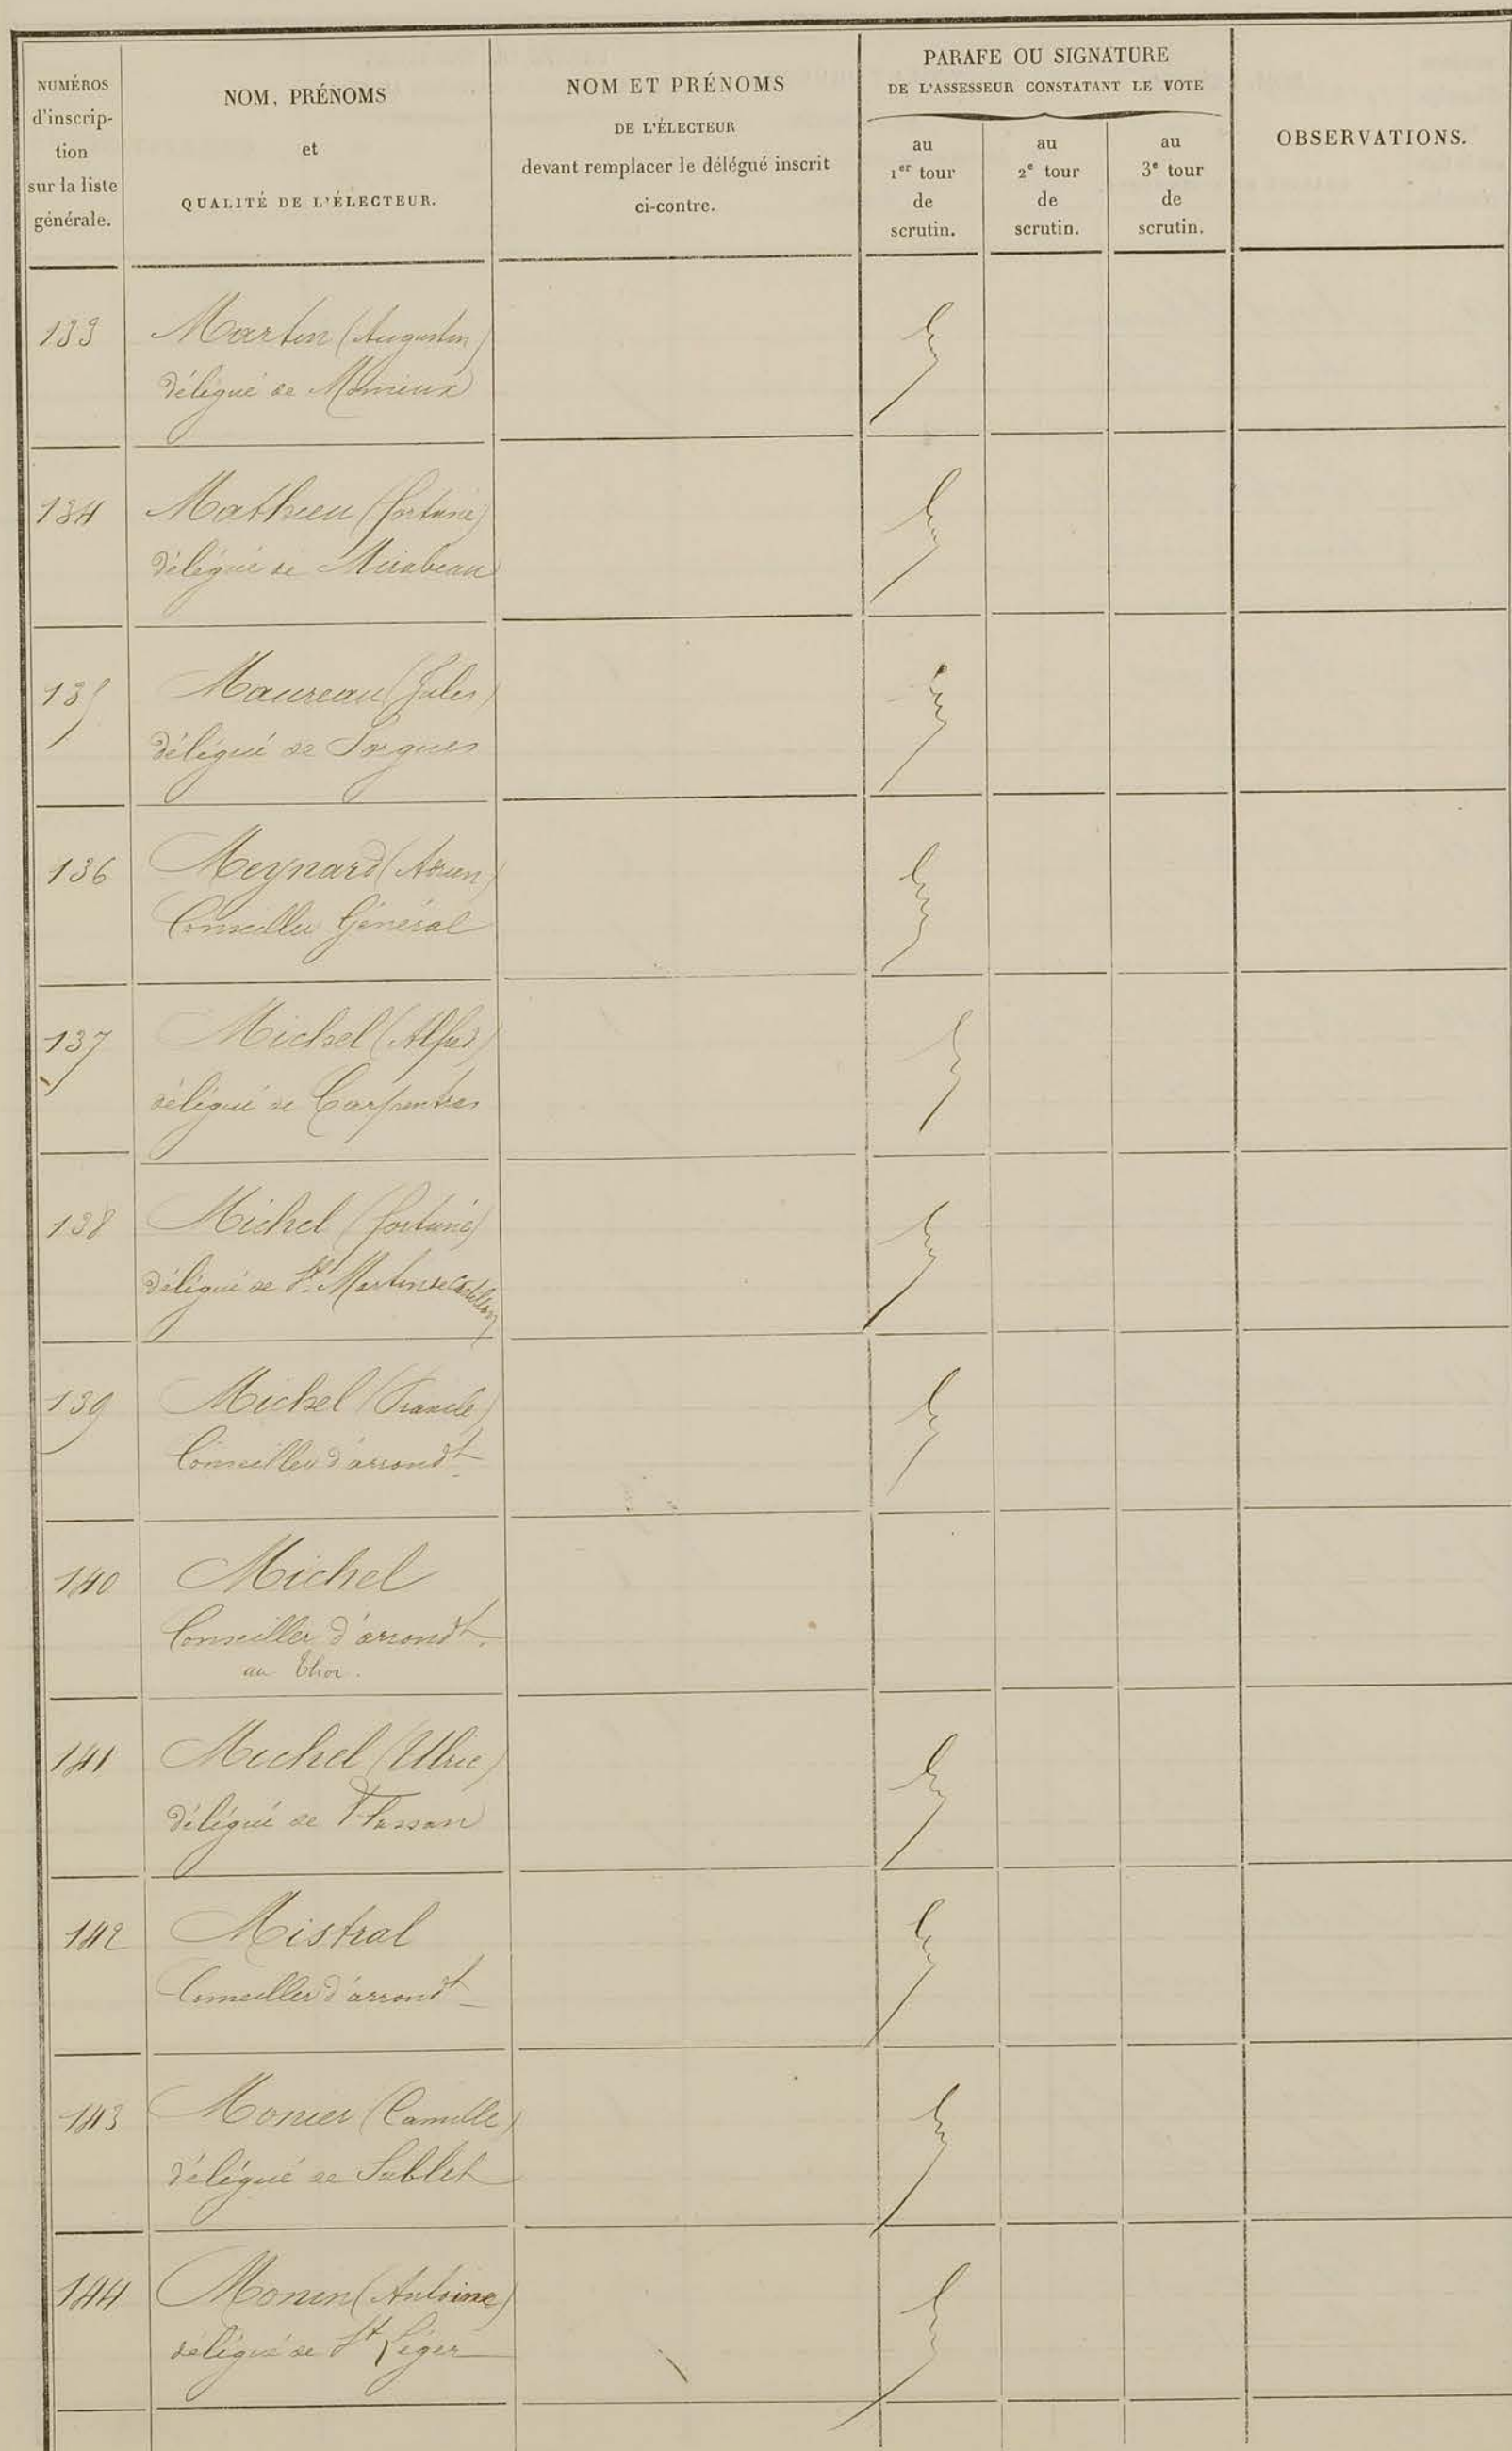 NUMÉROS
d'inscrip-
tion
sur la liste
générale.
NOM, PRÉNOMS
et
QUALITÉ DE L'ÉLECTEUR.
NOM ET PRÉNOMS
DE L'ÉLECTEUR
devant remplacer le délégué inscrit
ci-contre.
PARAFE OU SIGNATURE
DE L'ASSESSEUR CONSTATANT LE VOTE
au
1er tour
de
scrutin.
au
2e tour
de
scrutin.
au
3e tour
de
scrutin.
OBSERVATIONS.
133 Martin (Augustin)
délégué de Monieux
134 Mathieu (fortuné)
délégué de Mirabeau
135 Maureau (Jules)
délégué de Sorgues
136 Meynard
Conseiller Général
137 Michel (Alfred)
délégué de Carpentras
138 Michel (fortuné)
délégué de St. Martin de Castillon
139 Michel
Conseiller d'arrondt
140 Michel
Conseiller d'arrondt.
au Thor.
141 Michel (Ulric)
délégué de Flassan
142 Mistral
Conseiller d'arrondt
143 Monier (Camille)
délégué de Sablet
144 Monin (Antoine)
délégué de St Léger